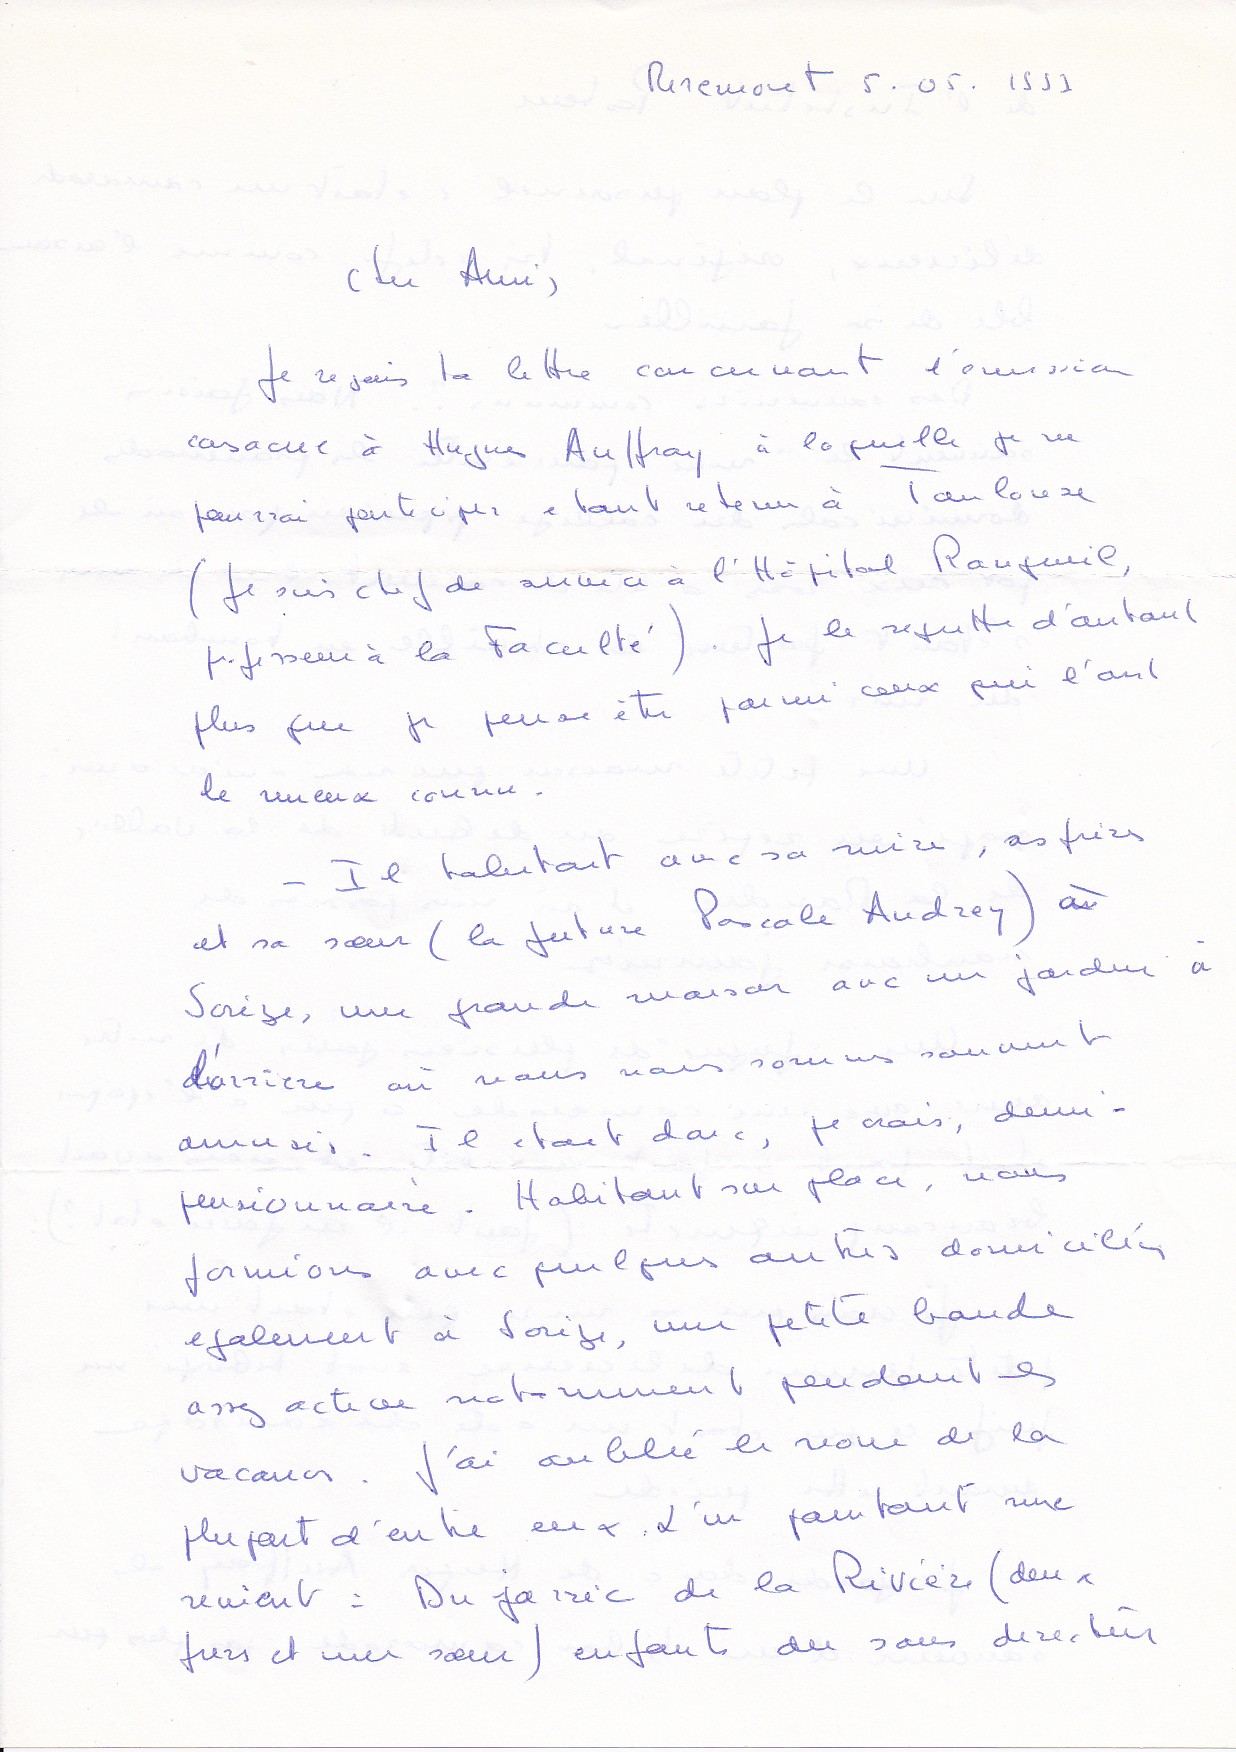 Miremont 5. 05. 1993
Cher Ami,
Je reçois ta lettre concernant l'émission
consacrée à Hugues Auffray à laquelle je ne
pourrai participer etant retenu à Toulouse
(Je suis chef de service à l'Hôpital Rangueil,
professeur à la Faculté). Je le regrette d'autant
plus que je pense être parmi ceux qui l'ont
le mieux connu.
- Il habitait avec sa mère, ses frères
et sa sœur (la future Pascale Audrey) à
Sorèze, une grande maison avec un jardin à
l'arrière où nous nous sommes souvent
amusés. Il etait donc, je crois, demi-
pensionnaire. Habitant sur place, nous
formions avec quelques autres domiciliés
egalement à Sorèze, une petite bande
assez active notamment pendant les
vacances. J'ai oublié le nom de la
plupart d'entre eux. L'un pourtant me
revient : Du jarric de la Rivière (deux
frères et une sœur) enfants du sous directeur